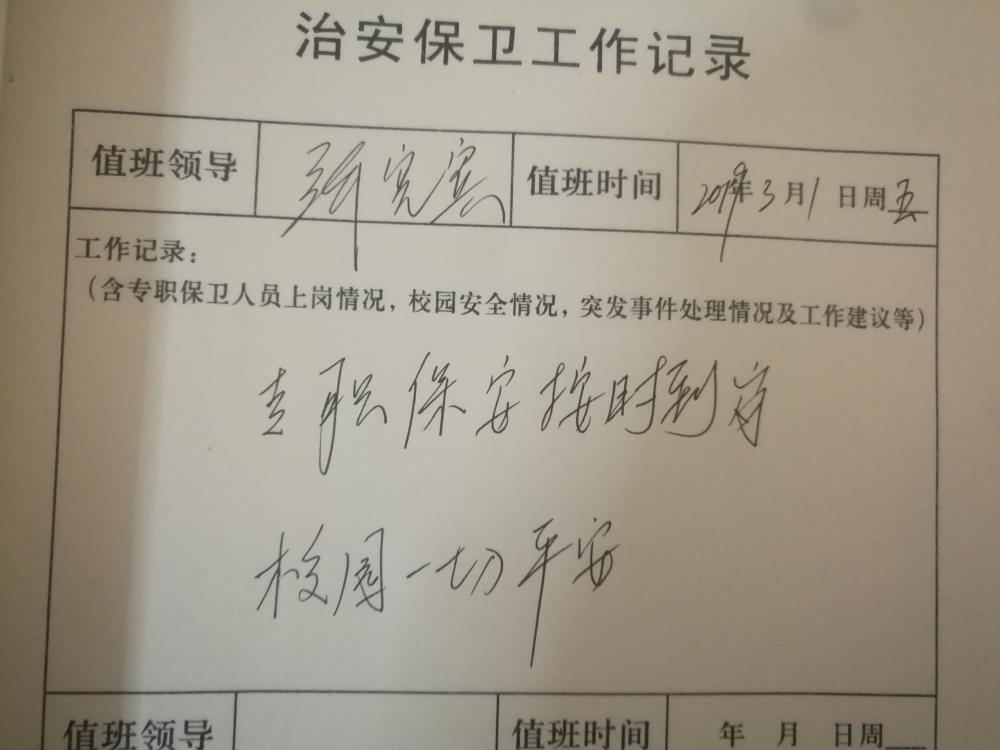 治安保卫工作记录
值班领导 张宪宾 值班时间 2019年3月1日周五
工作记录：
（含专职保卫人员上岗情况，校园安全情况，突发事件处理情况及工作建议等）
专职保安按时到岗
校园一切平安
值班领导 值班时间 年 月 日周